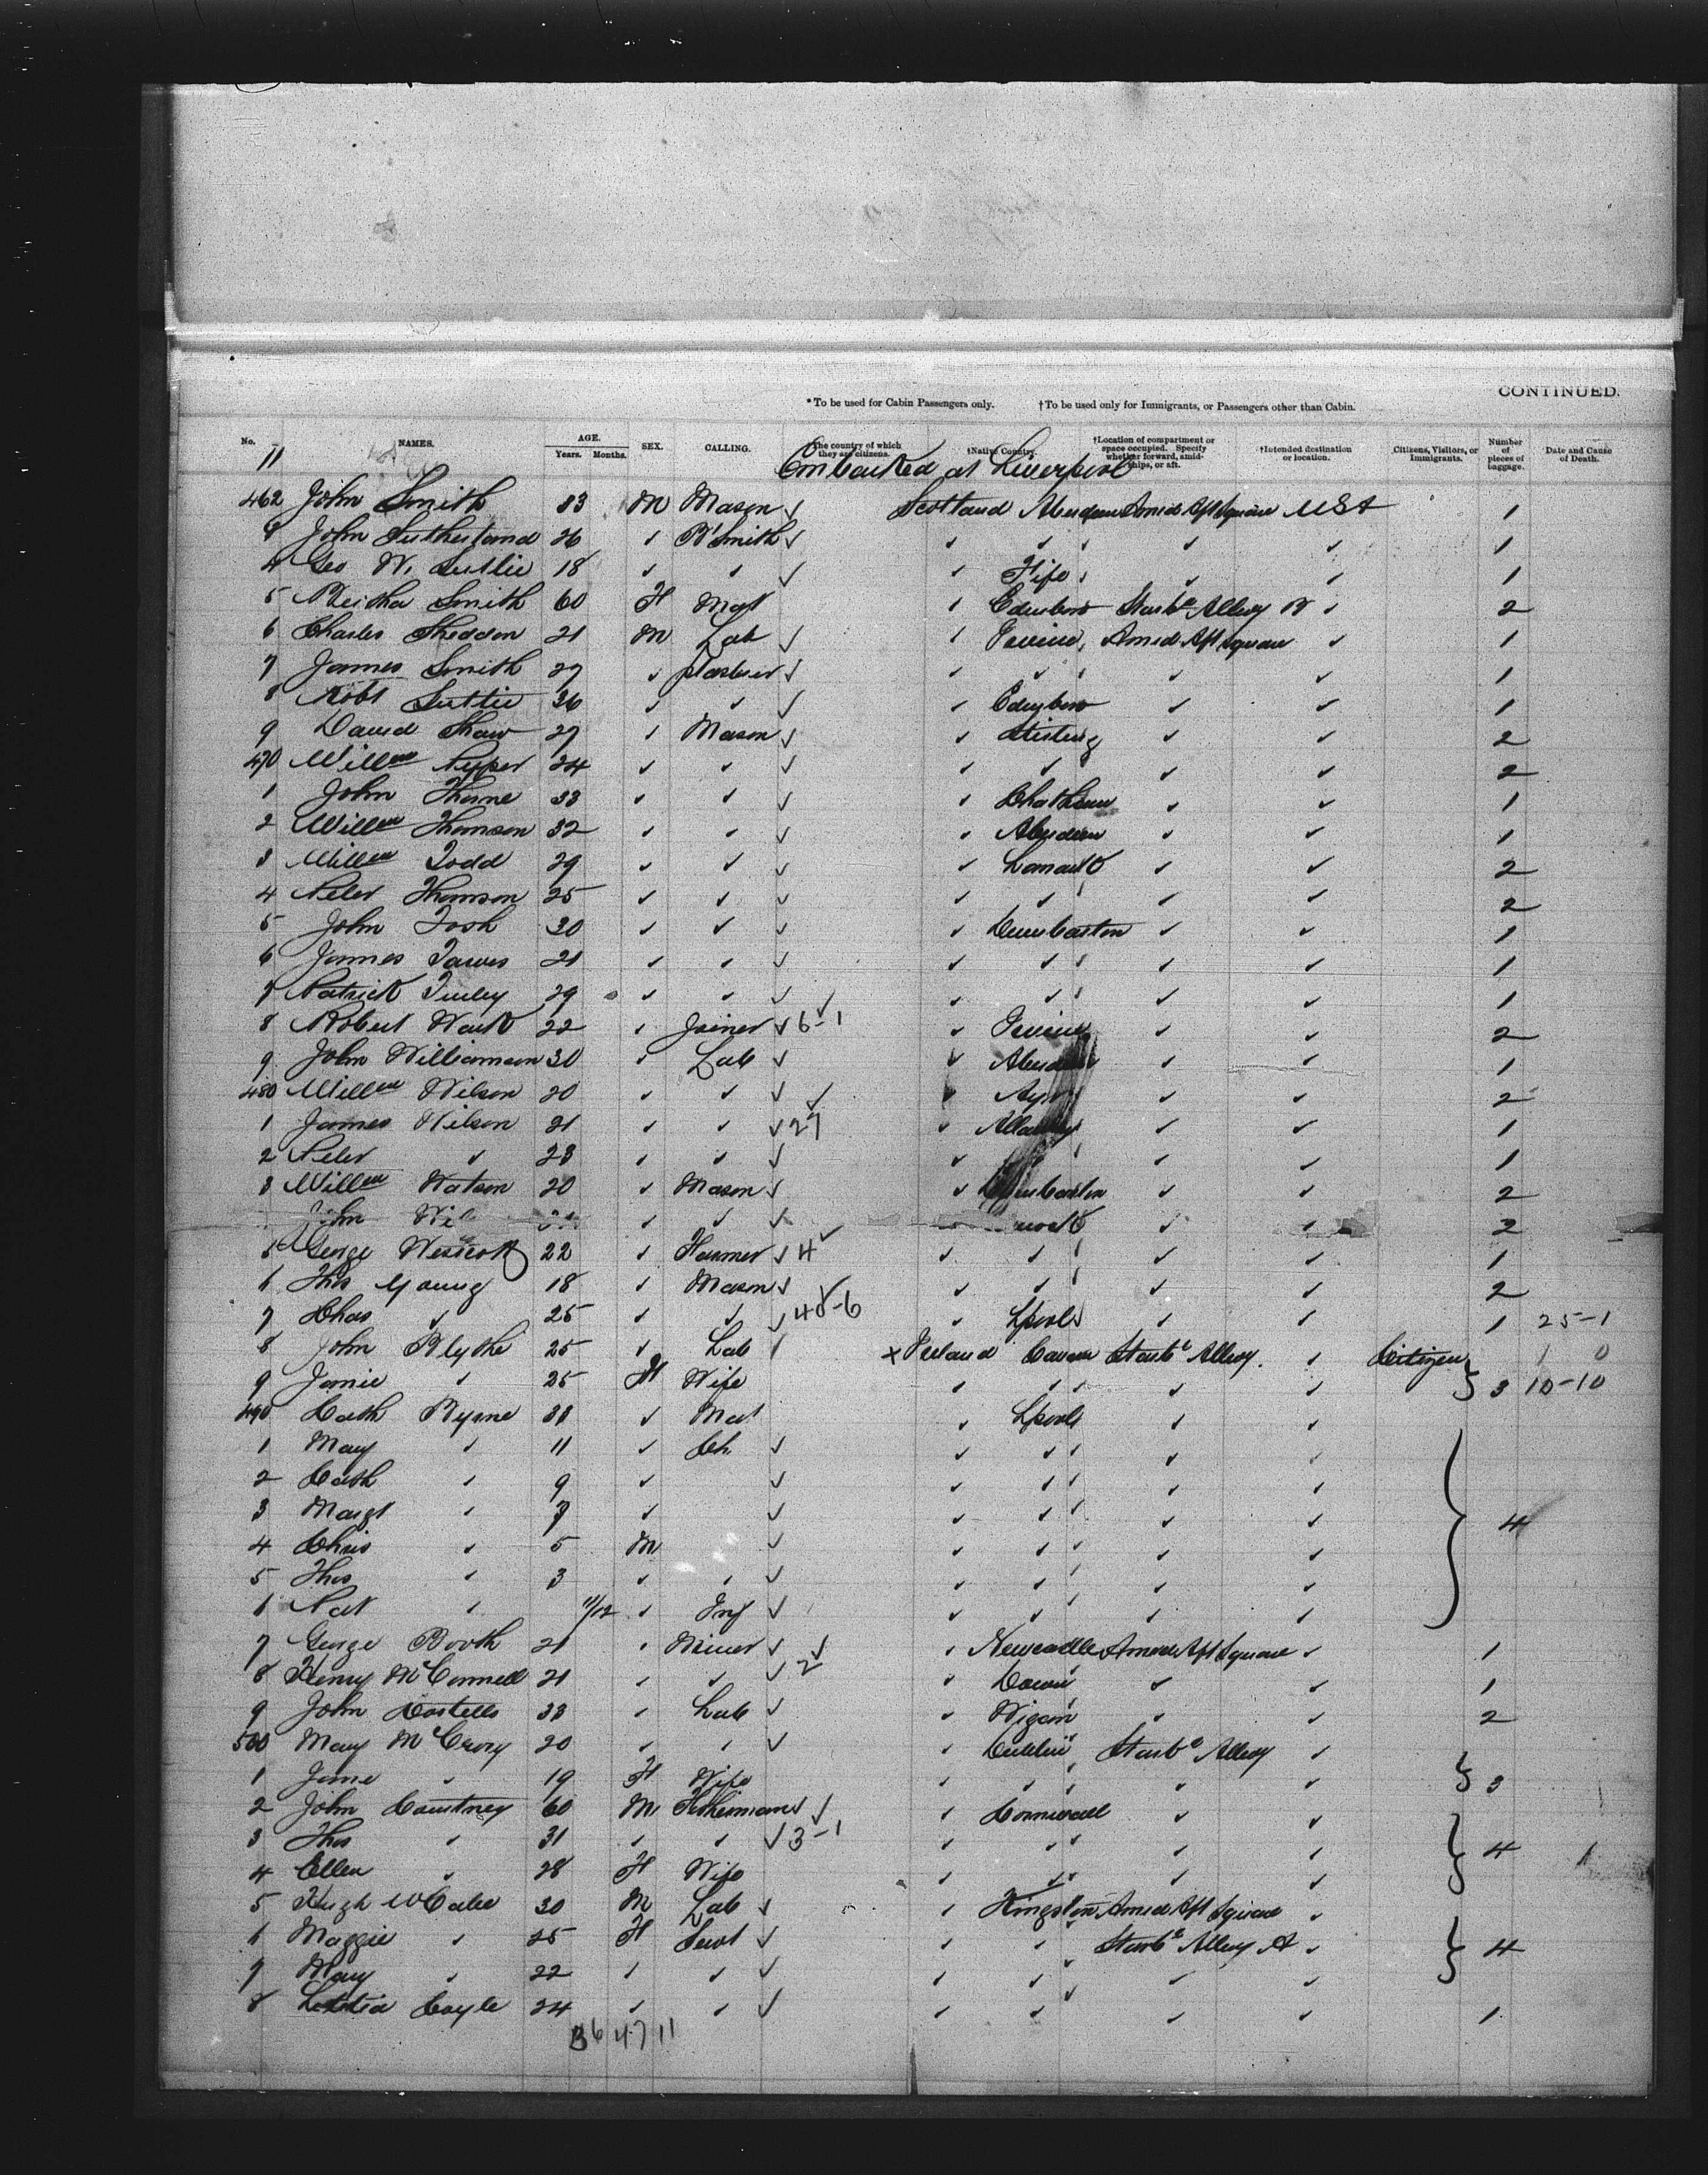 CONTINUED.
*To be used for Cabin Passengers only. †To be used only for Immigrants, or Passengers other than Cabin.
No. NAMES. AGE. Years. Months. SEX. CALLING. The country of which they are citizens. †Native Country. †Location of compartment or space occupied. Specify whether forward, amidships, or aft. †Intended destination or location. Citizens, Visitors, or Immigrants. Number of pieces of baggage. Date and Cause of Death.
11 Embarked at Liverpool
462 John Smith 33 M Mason ✓ Scotland Aberdeen Amid Aft Square USA 1
John Sutherland 26 ✓ B Smith ✓ ✓ ✓ ✓ ✓ 1
4 Geo W. Suttie 18 ✓ ✓ ✓ ✓ Fife ✓ ✓ 1
5 Smith 60 F Mat ✓ Edinboro Starbd Alley ✓ 2
6 Charles Sheddon 21 M Lab ✓ ✓ Amid Aft Square ✓ 1
7 James Smith 27 ✓ ✓ ✓ ✓ ✓ ✓ 1
8 Robt Suttie 36 ✓ ✓ ✓ ✓ Edinboro ✓ ✓ 1
9 David Shaw 27 ✓ Mason ✓ ✓ Stirling ✓ ✓ 2
470 Willm 24 ✓ ✓ ✓ ✓ ✓ ✓ ✓ 2
1 John Thorne 33 ✓ ✓ ✓ ✓ Chatham ✓ ✓ 1
2 Willm Thomson 32 ✓ ✓ ✓ ✓ Aberdeen ✓ ✓ 1
3 Willm Todd 29 ✓ ✓ ✓ ✓ Lanark ✓ ✓ 2
4 Peter Thomson 25 ✓ ✓ ✓ ✓ ✓ ✓ ✓ 2
5 John Tosh 30 ✓ ✓ ✓ ✓ Dumbarton ✓ ✓ 1
6 James Tawes 21 ✓ ✓ ✓ ✓ ✓ ✓ ✓ 1
7 Patrick 29 ✓ ✓ ✓ ✓ ✓ ✓ ✓ 1
8 Robert Wark 22 ✓ Joiner ✓ 6-1 ✓ ✓ ✓ 2
9 John Williamson 30 ✓ Lab ✓ ✓ Aberdeen ✓ ✓ 1
480 Willm Wilson 20 ✓ ✓ ✓ ✓ Ayr ✓ ✓ 2
1 James Wilson 21 ✓ ✓ ✓ 27 ✓ ✓ ✓ 1
2 Peter ✓ 23 ✓ ✓ ✓ ✓ ✓ ✓ ✓ 1
3 Willm Watson 20 ✓ Mason ✓ ✓ Dumbarton ✓ ✓ 2
John ✓ ✓ ✓ ✓ ✓ 2
5 George Westcott 22 ✓ Farmer ✓ 4 ✓ ✓ ✓ ✓ 1
6 Thos Young 18 ✓ Mason ✓ ✓ ✓ ✓ ✓ 2
7 Chas ✓ 25 ✓ ✓ ✓ 48-6 ✓ Lpool ✓ ✓ 1 25-1
8 John Blythe 25 ✓ Lab x Ireland Cavan Starbd Alley ✓ Citizen 1 0
9 Janie ✓ 25 F Wife ✓ ✓ ✓ ✓ 3 10-10
490 Cath Byrne 38 ✓ Mat ✓ Lpool ✓ ✓
1 Mary ✓ 11 ✓ Ch ✓ ✓ ✓ ✓ ✓
2 Cath ✓ 9 ✓ ✓ ✓ ✓ ✓ ✓
3 Margt ✓ 7 ✓ ✓ ✓ ✓ ✓ ✓ 4
4 Chris ✓ 5 M ✓ ✓ ✓ ✓ ✓
5 Thos ✓ 3 ✓ ✓ ✓ ✓ ✓ ✓ ✓
6 Pat ✓ 11/12 ✓ Inf ✓ ✓ ✓ ✓ ✓
7 George Booth 21 ✓ Miner ✓ ✓ Newcastle Amid Aft Square ✓ 1
8 Henry McConnell 21 ✓ ✓ ✓ 2 ✓ Down ✓ ✓ 1
9 John Costello 33 ✓ Lab ✓ ✓ Wigan ✓ ✓ 2
500 McCrory 20 ✓ ✓ ✓ ✓ Dublin Starbd Alley ✓
1 Jane ✓ 19 F Wife ✓ ✓ ✓ ✓ 3
2 John Courtney 60 M Fisherman ✓ ✓ Cornwall ✓ ✓
3 Thos ✓ 31 ✓ ✓ ✓ 3-1 ✓ ✓ ✓ ✓ 4
4 Ellen ✓ 28 F Wife ✓ ✓ ✓ ✓
5 Hugh McCabe 30 M Lab ✓ ✓ Kingston Amid Aft Square ✓
6 Maggie ✓ 25 F Servt ✓ ✓ ✓ Starbd Alley A ✓ 4
7 Mary ✓ 22 ✓ ✓ ✓ ✓ ✓ ✓ ✓
8 Letitia Coyle 24 ✓ ✓ ✓ ✓ ✓ ✓ ✓ 1
36 47 11